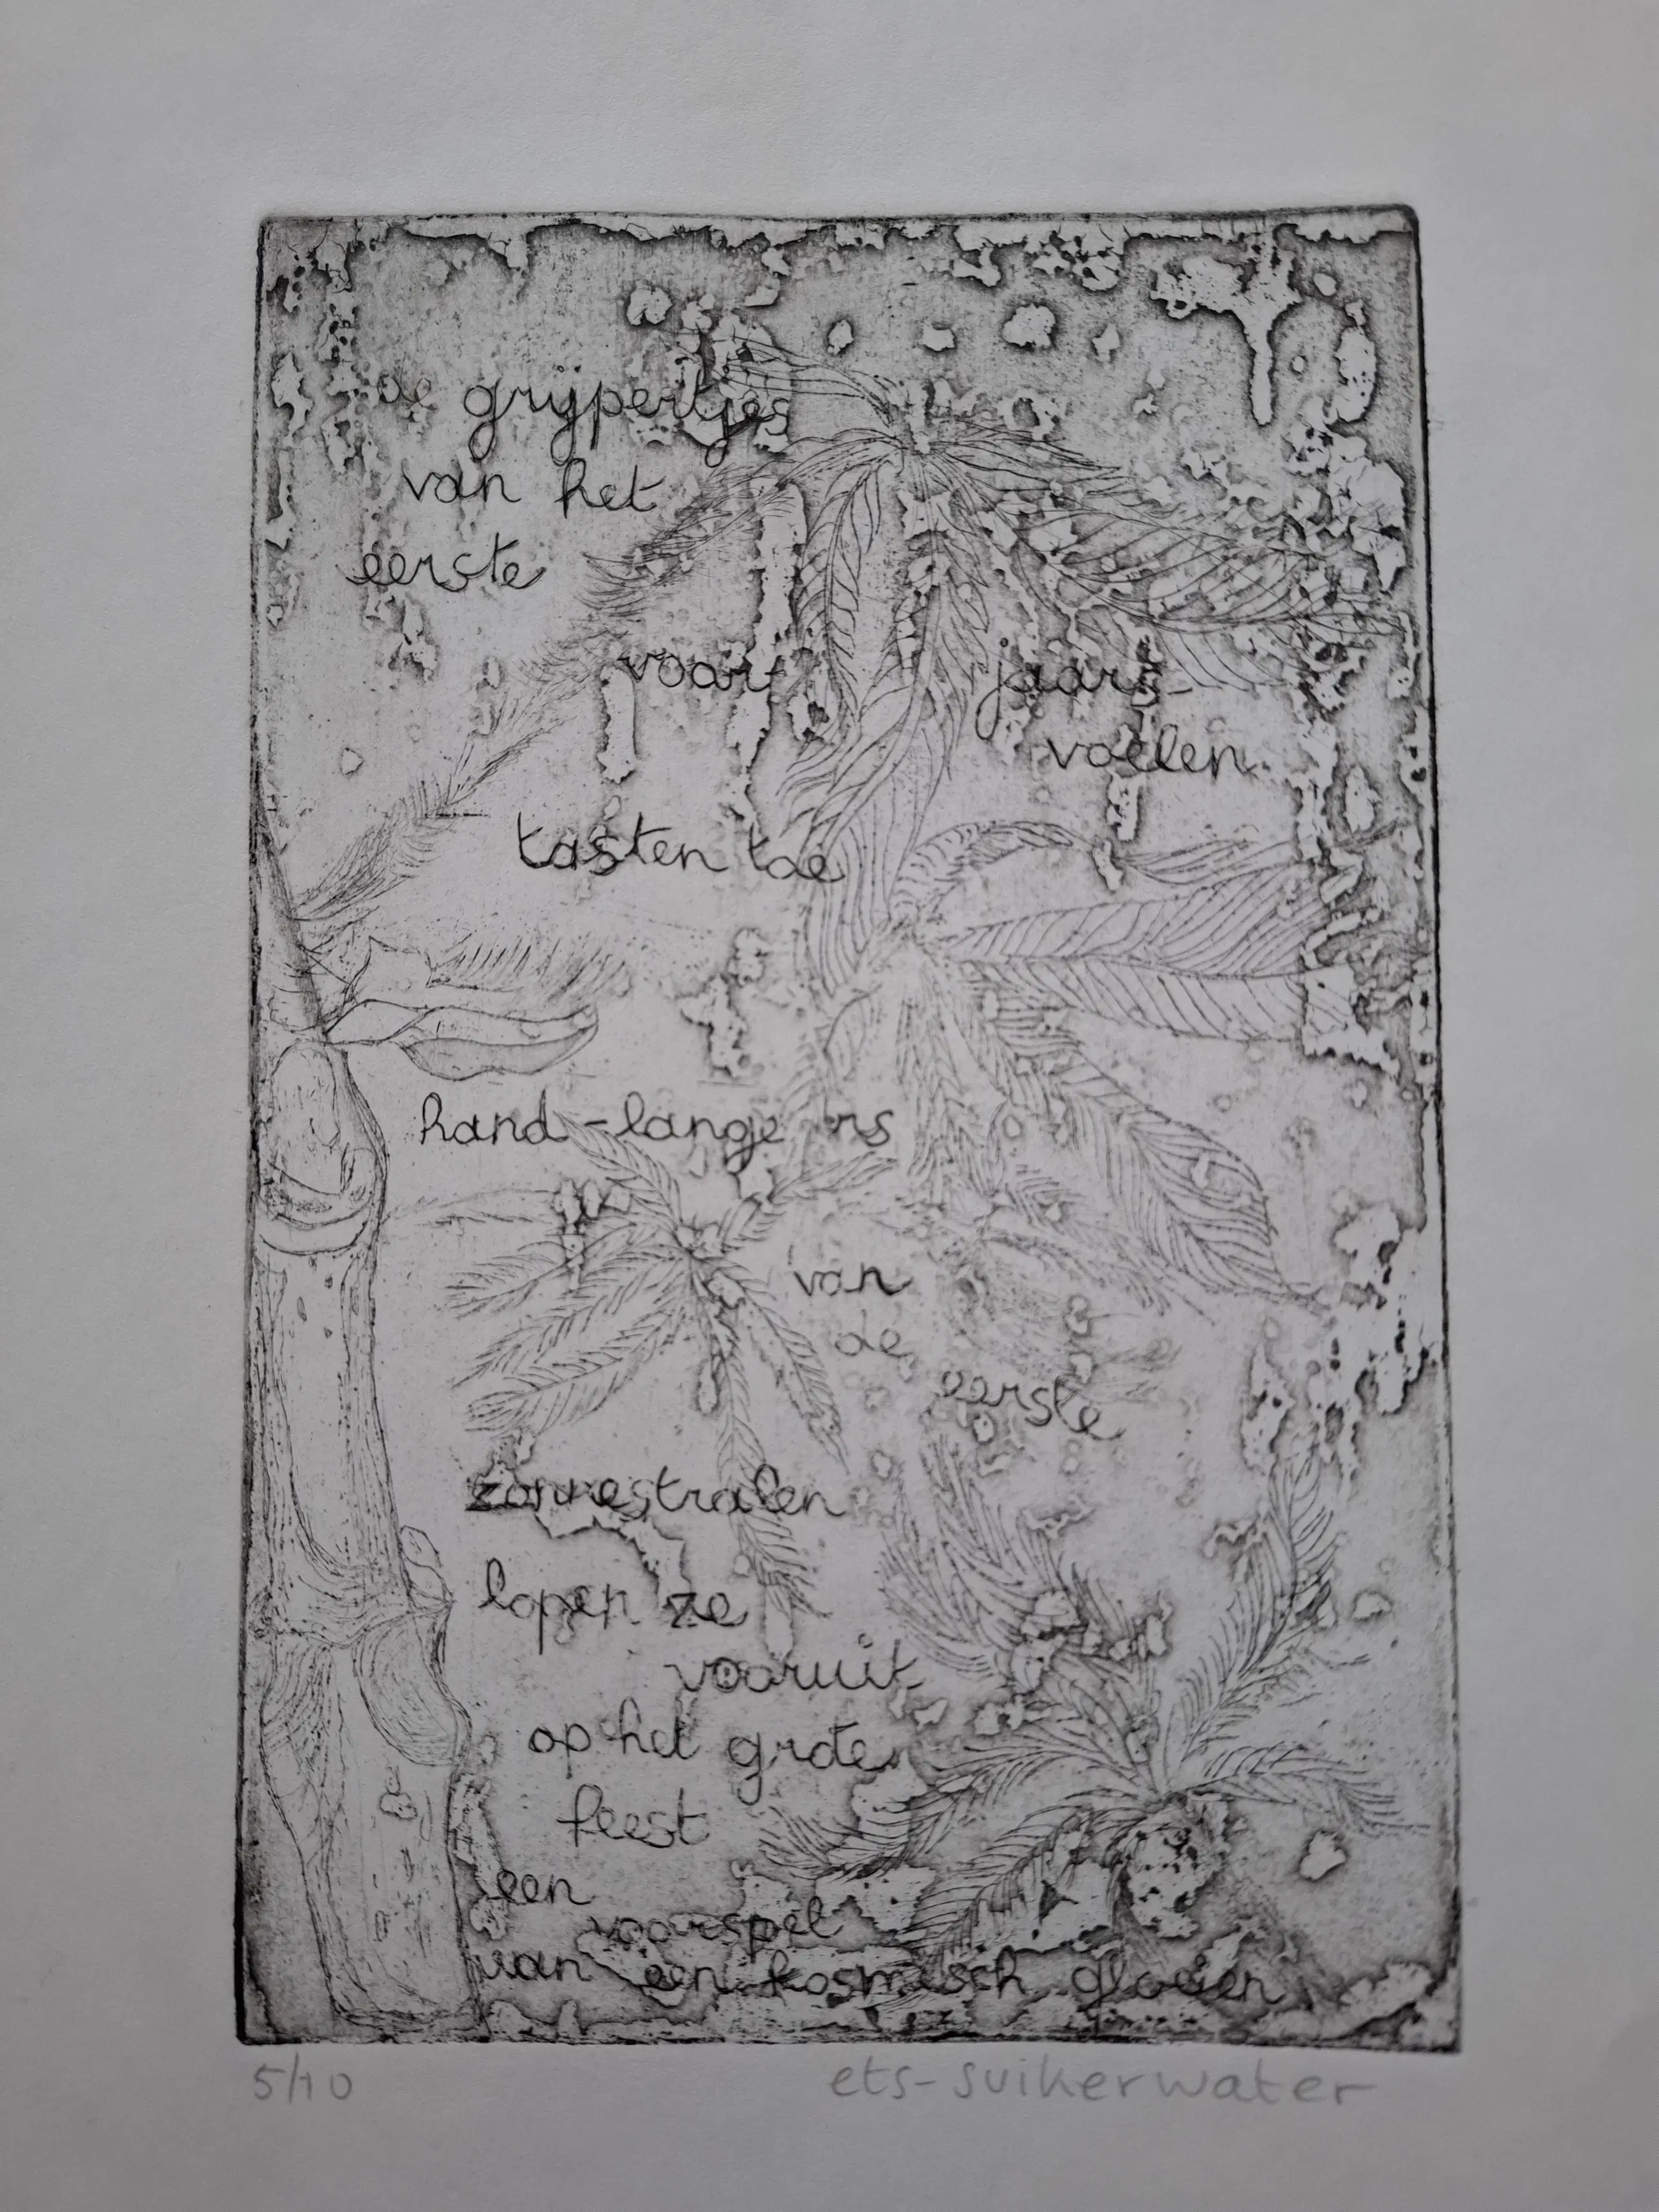 de grijpertjes
van het
eerste
voor- jaars-
voelen
tasten toe
hand-langers
van
de
eerste
zonnestralen
lopen ze
vooruit
op het grote
feest
een
voorspel
van een kosmisch gloeien
5/10 ets-suikerwater